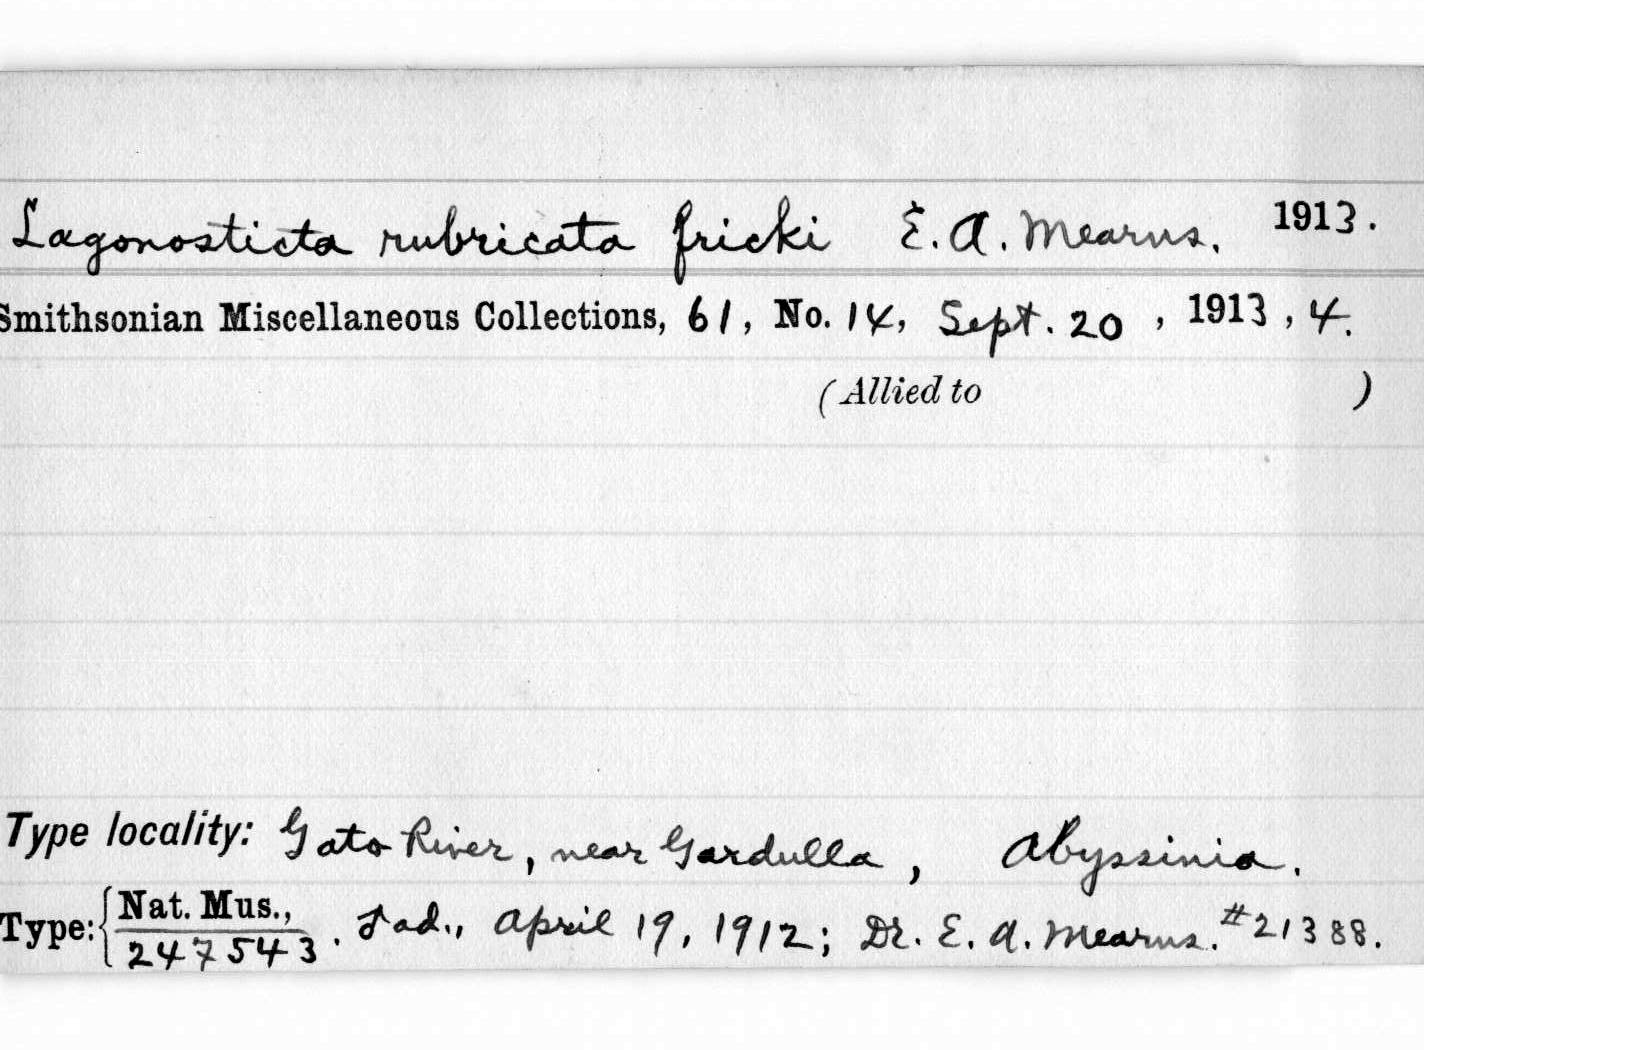 Lagonosticta rubricata fricki E. A. Mearns. 1913.
Smithsonian Miscellaneous Collections, 61, No. 14, Sept. 20, 1913, 4.
(Allied to )
Type locality: Gato River, near Gardulla, Abyssinia.
Type: { Nat. Mus., 247543. ad., April 19, 1912; Dr. E. A. Mearns. #21388.